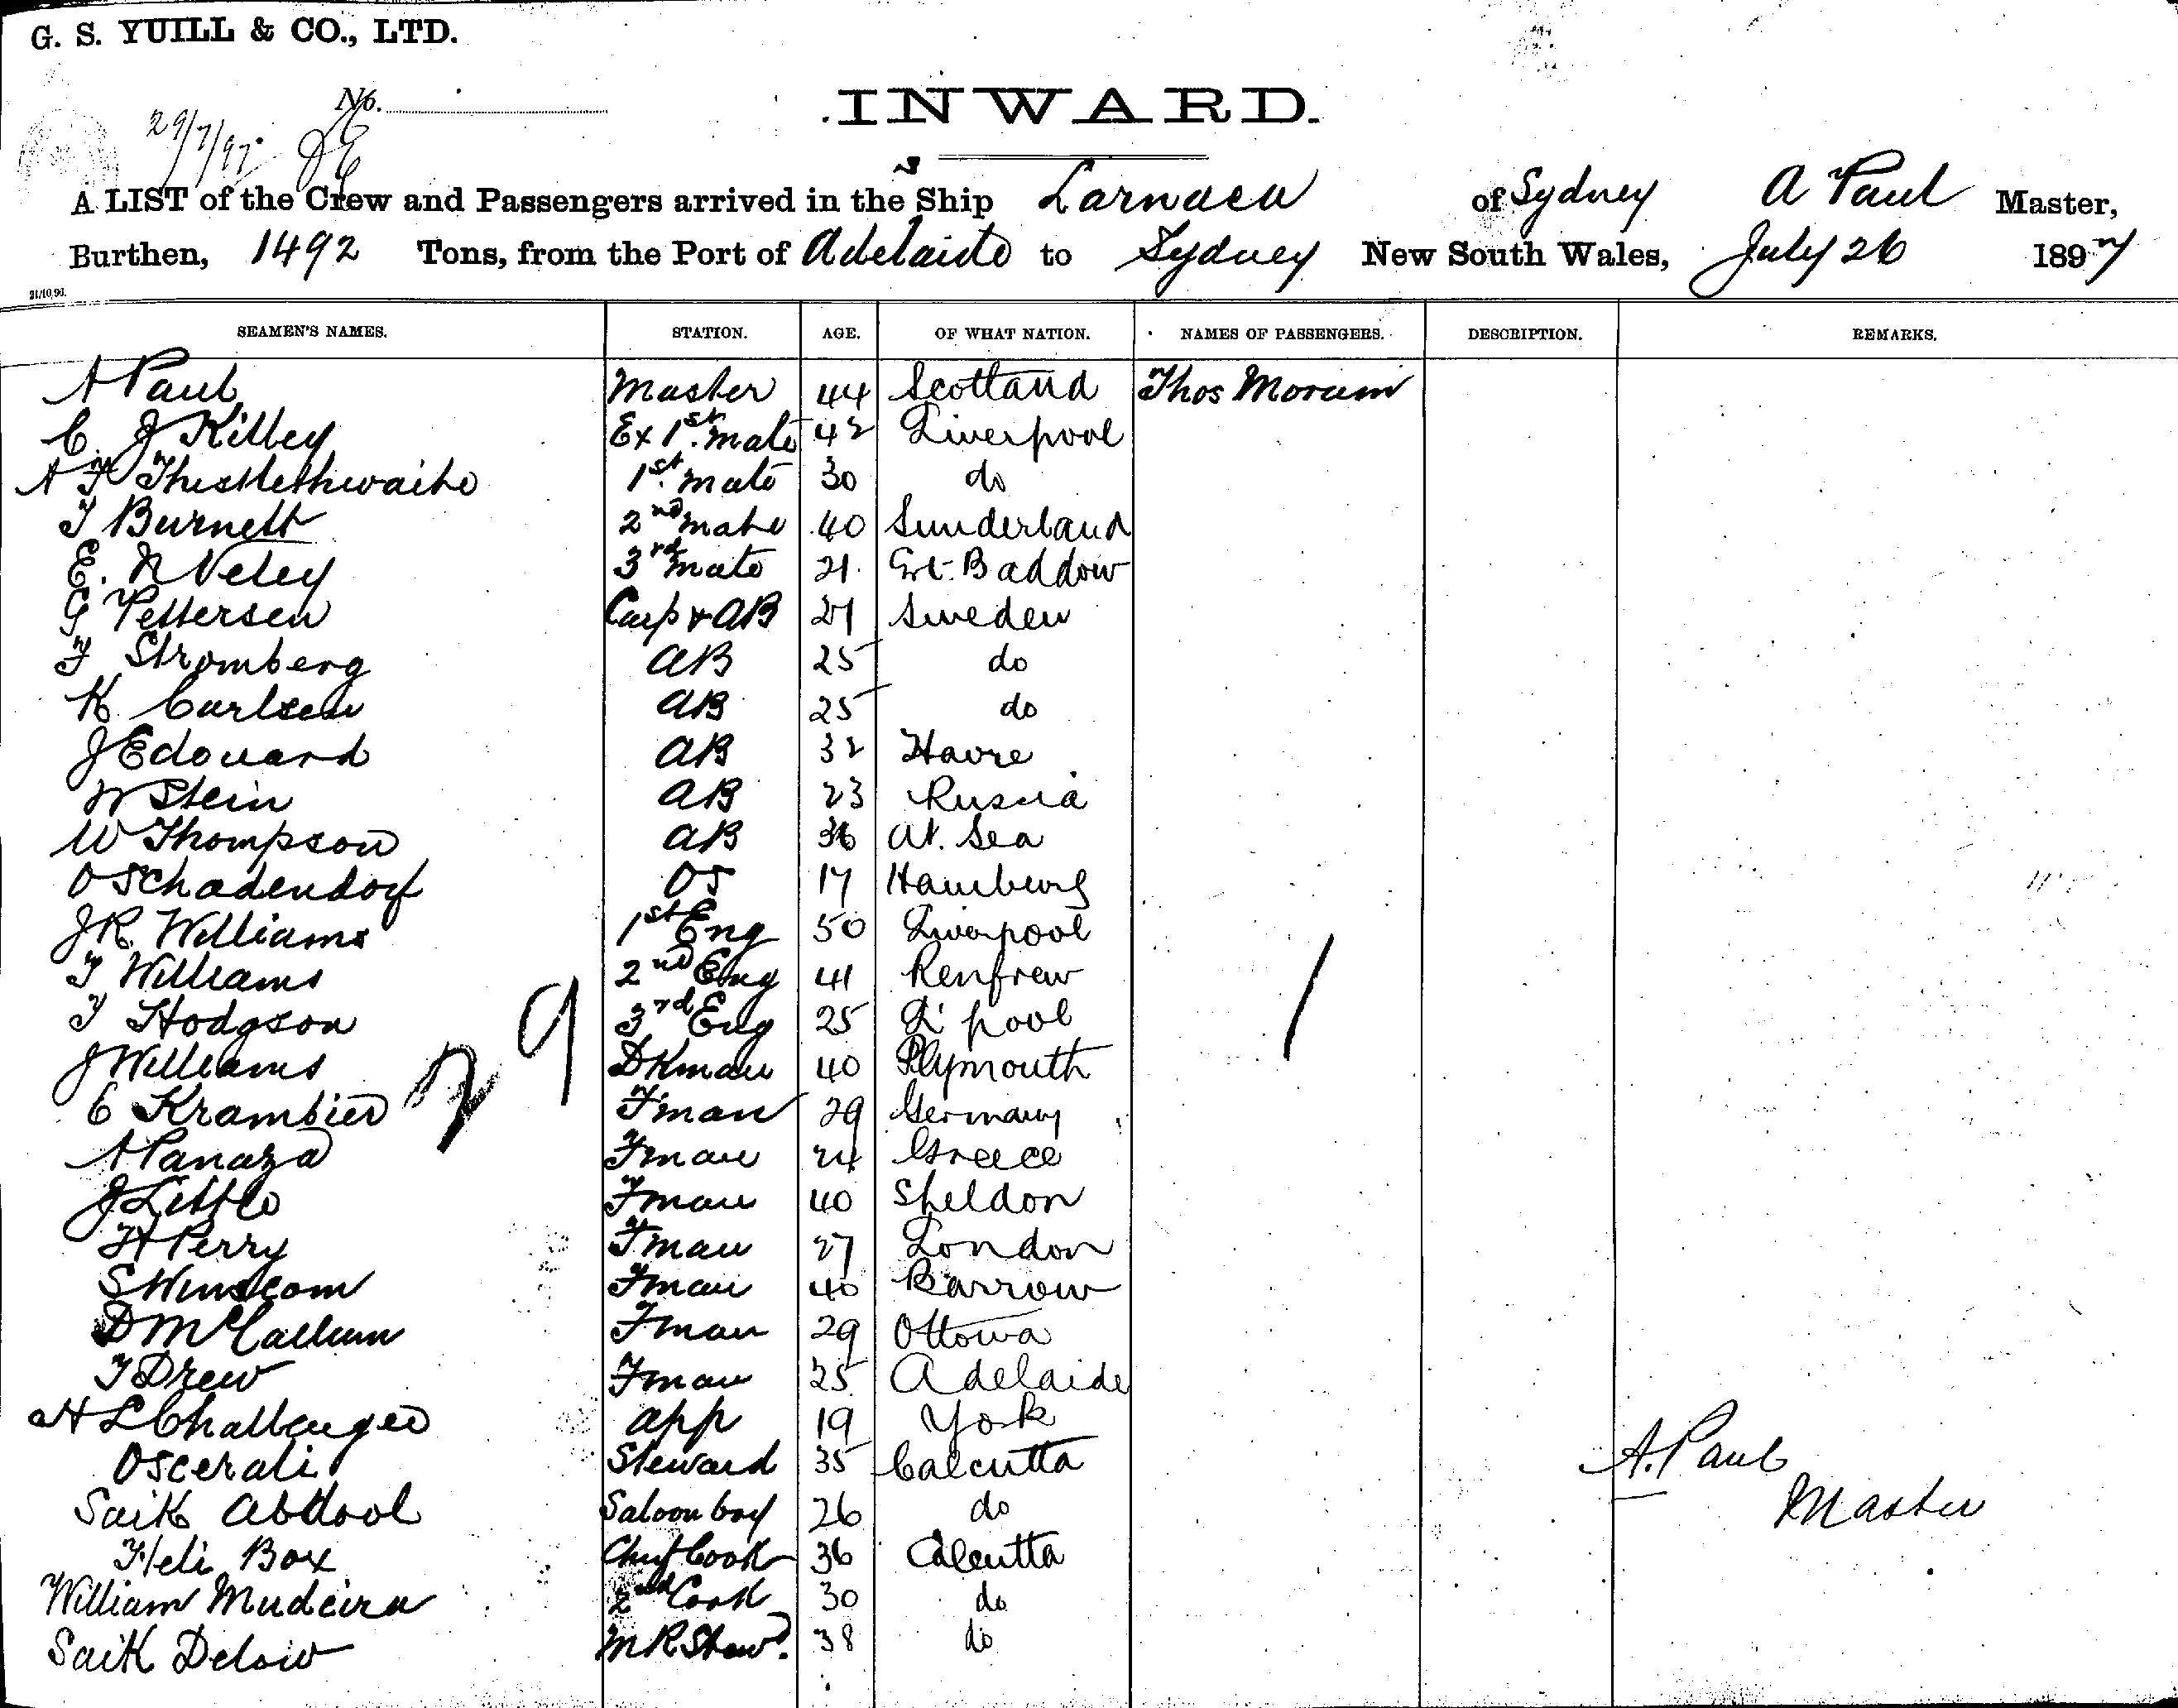 G. S. YUILL & CO., LTD.
No.
29/7/97
INWARD.
A LIST of the Crew and Passengers arrived in the Ship Larnaca of Sydney A Paul Master,
Burthen, 1492 Tons, from the Port of Adelaide to Sydney New South Wales, July 26 1897
21/10/96.
SEAMEN'S NAMES. STATION. AGE. OF WHAT NATION. NAMES OF PASSENGERS. DESCRIPTION. REMARKS.
A Paul Master 44 Scotland Thos
C. J Killey Ex 1st. mate 42 Liverpool
A T Thistlethwaite 1st. mate 30 do
T Burnett 2nd mate 40 Sunderland
E. N Veley 3rd mate 21 Grt. Baddow
G Pettersen Carp & AB 27 Sweden
F Stromberg AB 25 do
K. Carlsen AB 25 do
J Edouard AB 32 Havre
W Stein AB 23 Russia
W Thompson AB 36 At. Sea
O Schadendorf OS 17 Hamburg
J R. Williams 1st Eng 50 Liverpool
T Williams 2nd Eng 41 Renfrew
T Hodgson 3rd Eng 25 L'pool
J Williams DKman 40 Plymouth
C Krambier F'man 29 Germany
A Panaza Fman 24 Greece
J Little Fman 40 Sheldon
H Perry Fman 27 London
S Winscom Fman 40 Barrow
D McCallum Fman 29 Ottowa
T Drew Fman 25 Adelaide
H L Challenger app 19 York
Oscerali Steward 35 Calcutta
Saik Abdool Saloon boy 26 do
Heli Box Chief Cook 36 Calcutta
William Mudeira 2nd Cook 30 do
Saik Delow M R Stewd. 38 do
29
1
A. Paul
Master